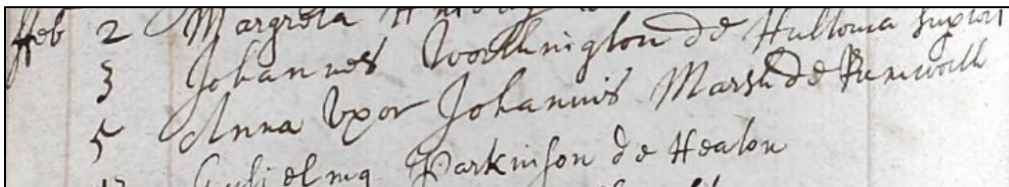 ffeb 2 Margreta
3 Johannes Worthington de Hultonia Suprior
5 Anna Uxor Johannis Marsh de Rumworth
Gulielmus Parkinson de Heaton